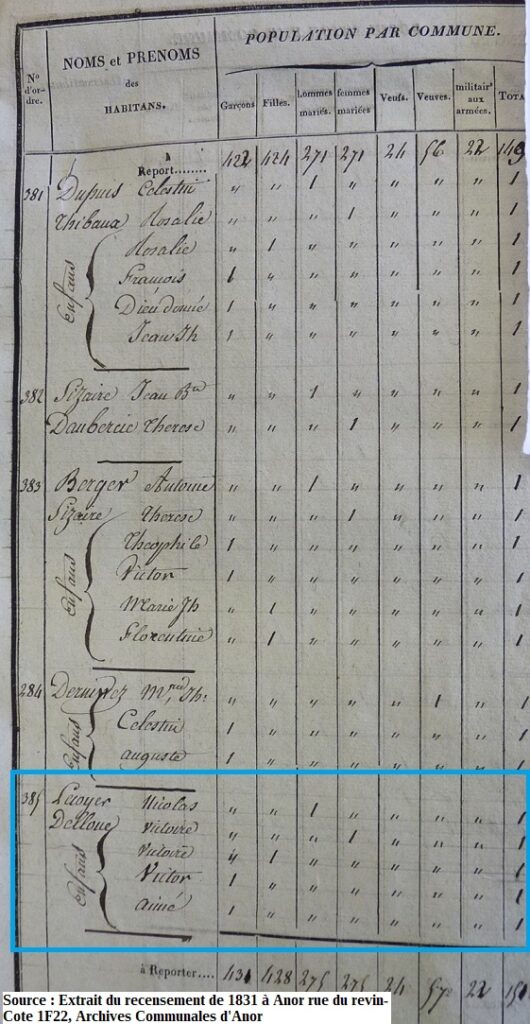 N.º d'or-dre.
NOMS et PRENOMS
des
HABITANS.
POPULATION PAR COMMUNE.
Garçons. Filles. hommes mariés. femmes mariées Veufs. Veuves. militair.ˢ aux armées. TOTA
à Report........ 422 424 271 271 24 56 22 149
381 Dupuis Celestin " " 1 " " " " 1
Thibaux Rosalie " " " 1 " " " 1
Enfans
Rosalie " 1 " " " " " 1
François 1 " " " " " " 1
Dieudonné 1 " " " " " " 1
Jean Jh 1 " " " " " " 1
382 Sizaire Jean Bte " " 1 " " " " 1
Daubercie Therese " " " 1 " " " 1
383 Berger Antoine " " 1 " " " " 1
Sizaire Therese " " " 1 " " " 1
Enfans
Theophile 1 " " " " " " 1
Victor 1 " " " " " " 1
Marie Jh " 1 " " " " " 1
Florentine " 1 " " " " " 1
284 Jh. " " " " " 1 " 1
Enfans
Celestin 1 " " " " " " 1
auguste 1 " " " " " " 1
385 Lecoyer Nicolas " " 1 " " " " 1
Delloue Victoire " " " 1 " " " 1
Enfans
Victoire " 1 " " " " " 1
Victor 1 " " " " " " 1
aimé 1 " " " " " " 1
à Reporter.... 431 428 275 275 24 57 22 151
Source : Extrait du recensement de 1831 à Anor rue du revin-
Cote 1F22, Archives Communales d'Anor